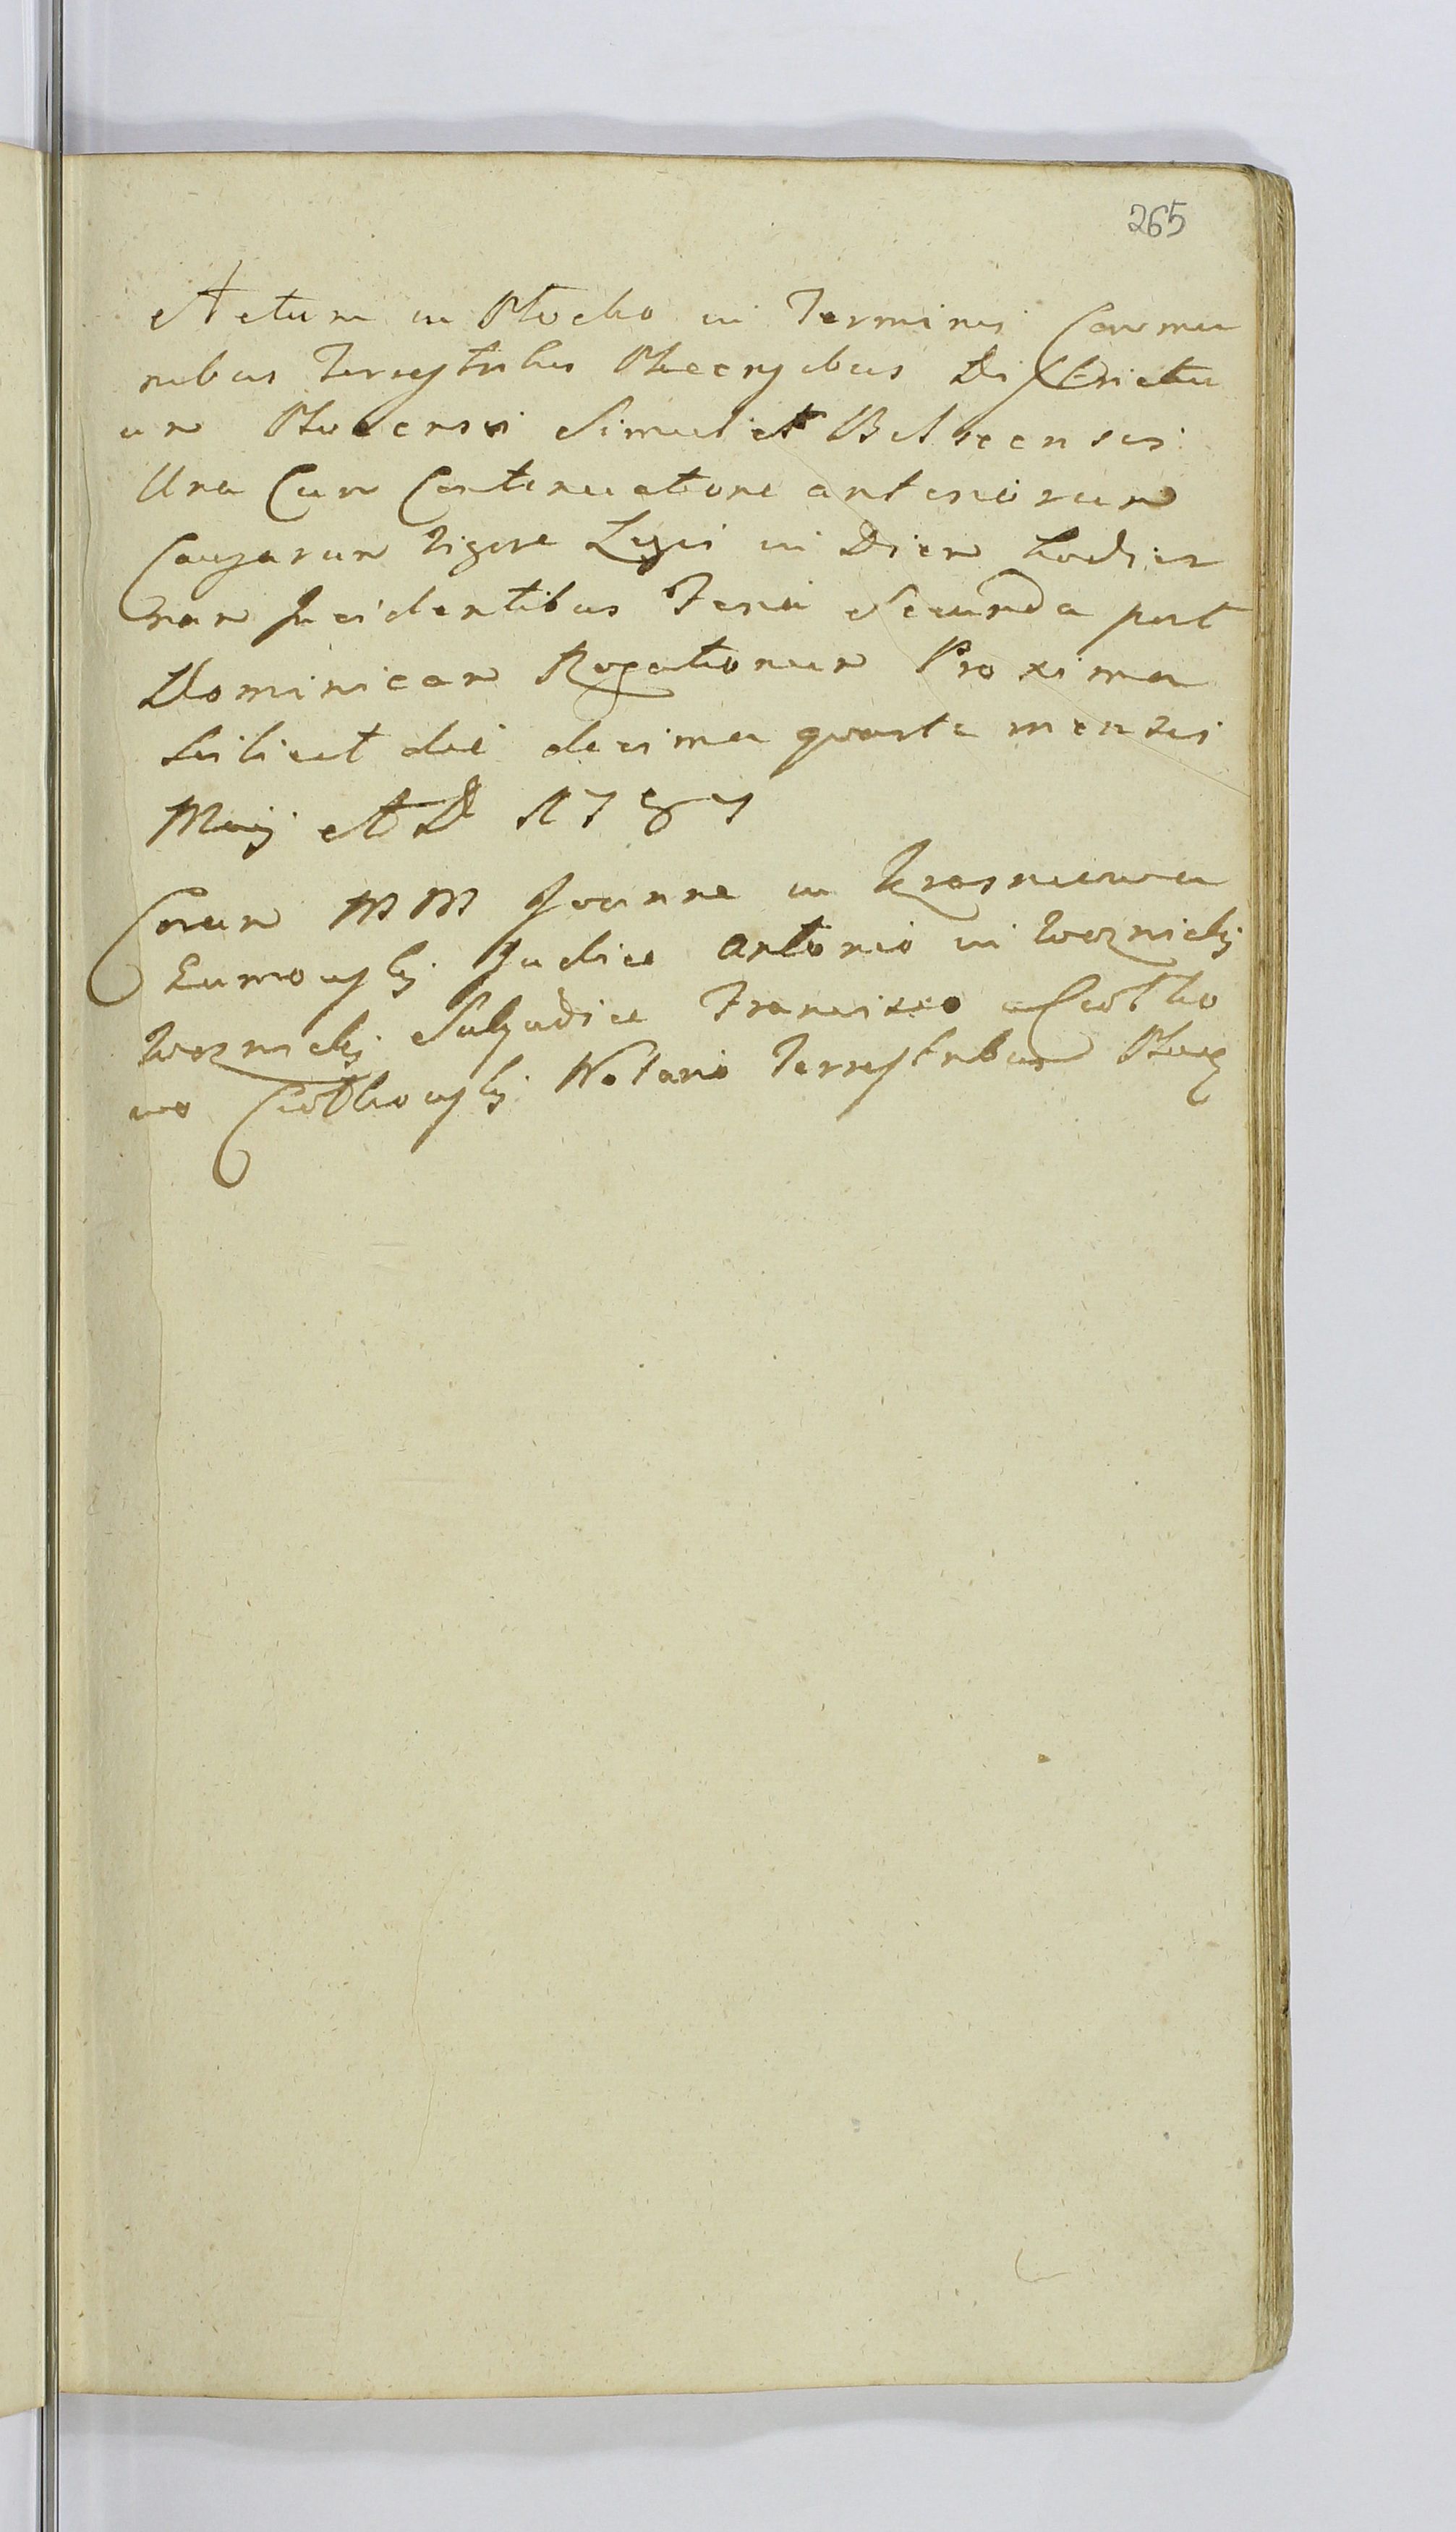 265
Actum in Płocko in Terminis Commu
nibus Terrestribus Plocensibus Districtu
um Plocensis Simul et Bielscensis
Una Cum Continuatione anteriorum
Causarum Vigore Legis in Diem hodier
nam Incidentibus Feria Secunda post
Dominicam Rogationum Proxima
Scilicet die decima quarta mensis
Maij A D 1787
Coram MM Joanne in
Judice Antonio in Woznicki
Woznicki Subjudice Francisco a Ciołko
wo Ciołkowski Notario Terrestribus Ploc